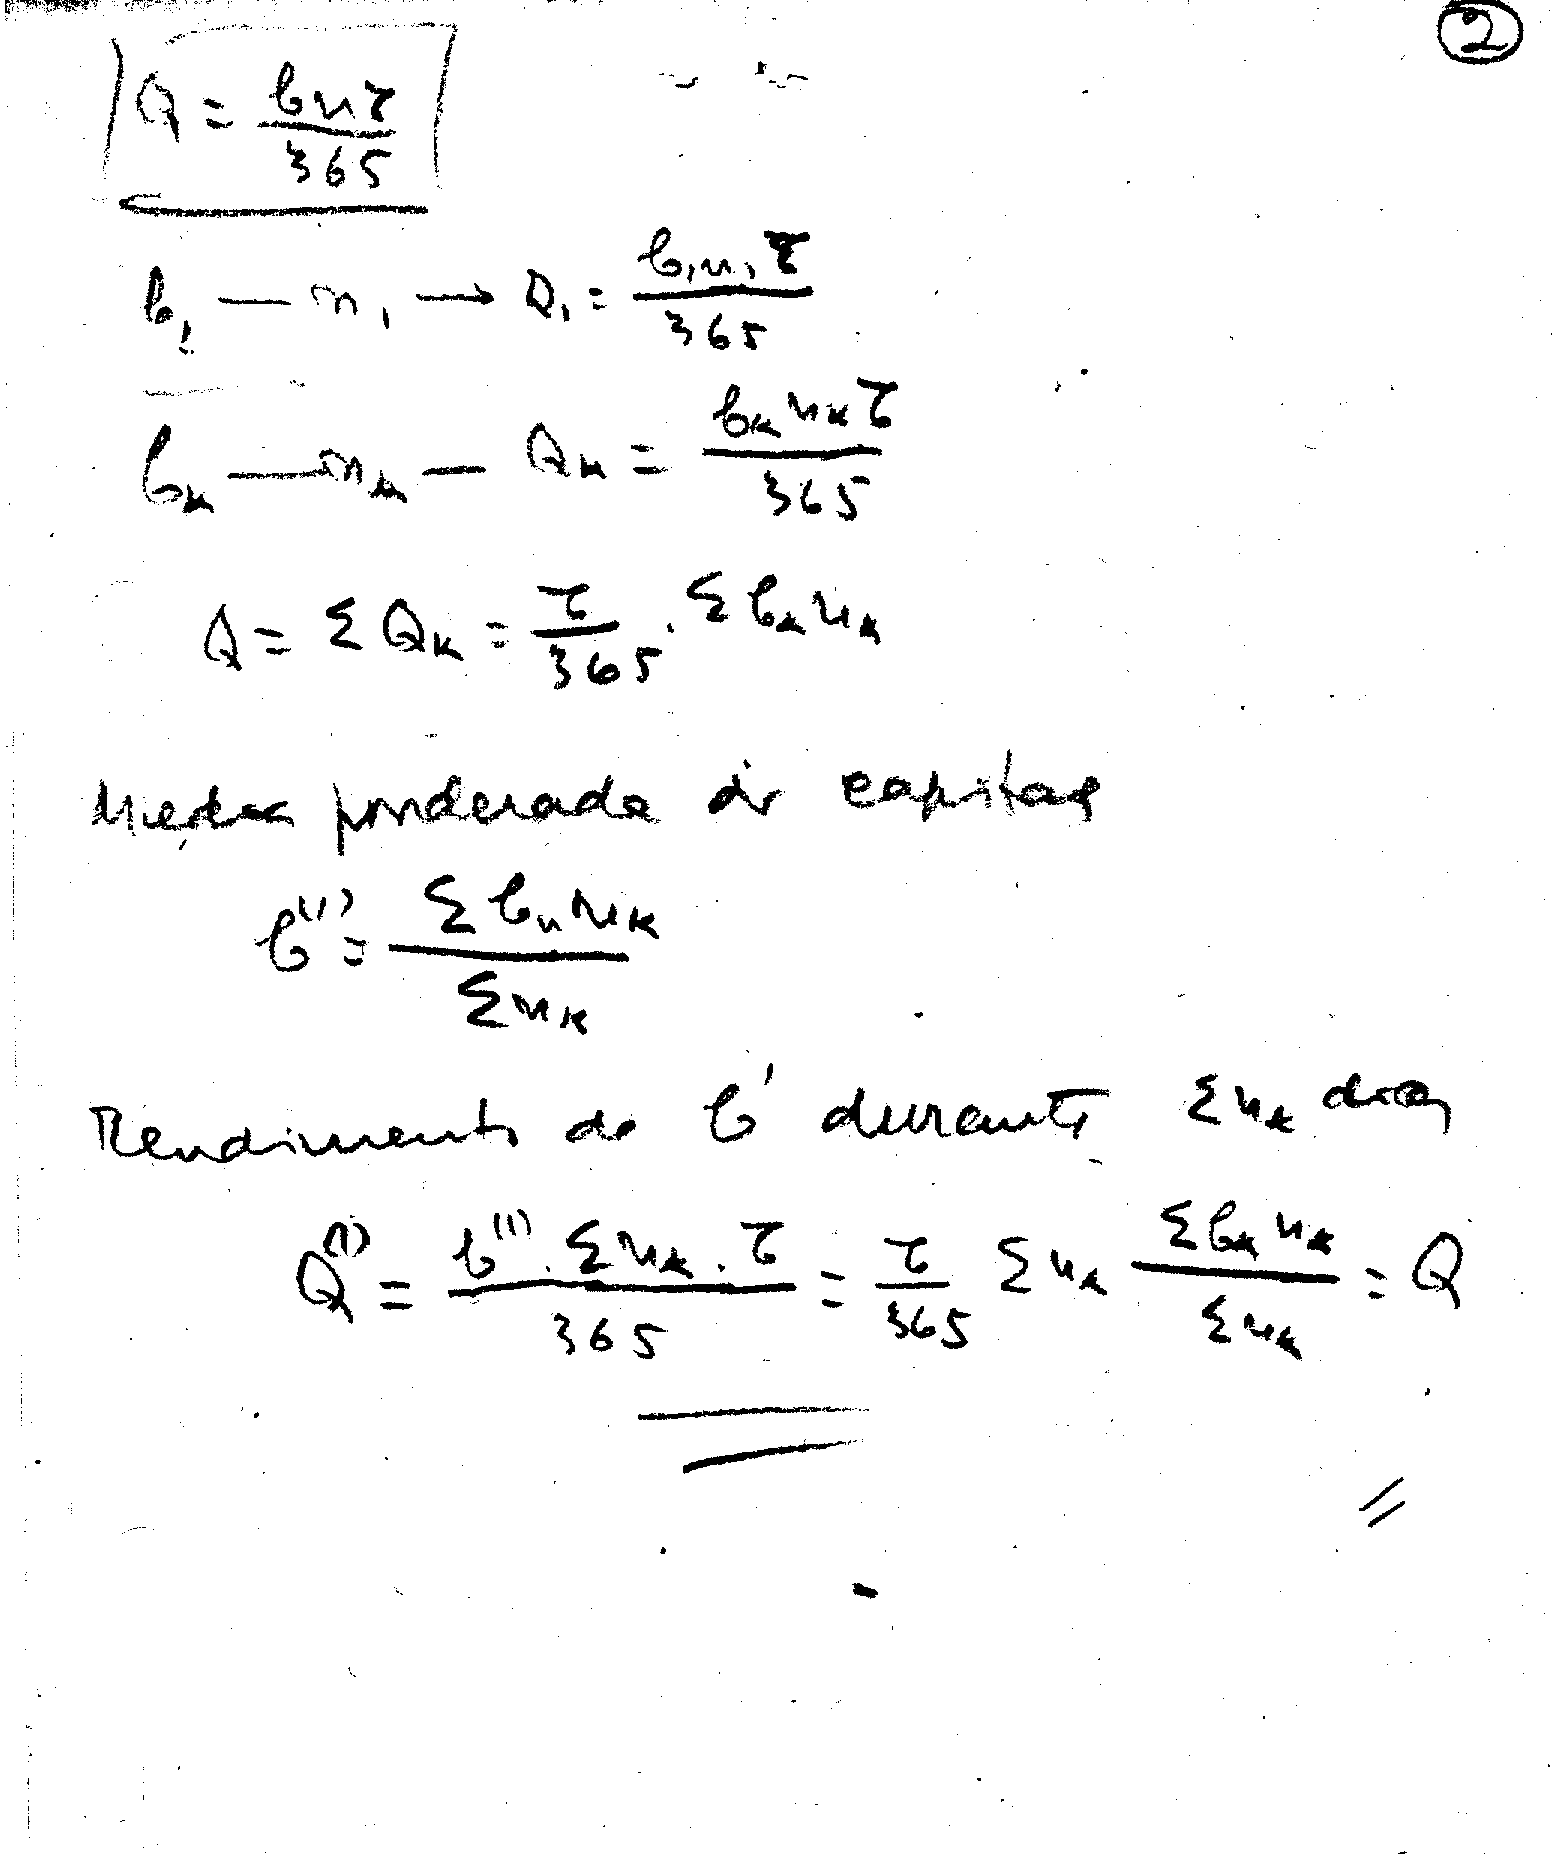 2
Q = bnτ / 365
b₁ — n₁ → Q₁ = b₁n₁τ / 365
bₖ — nₖ — Qₖ = bₖnₖτ / 365
Q = ΣQₖ = τ/365 · Σbₖnₖ
Media ponderada de capital
b⁽¹⁾ = Σbₖnₖ / Σnₖ
Rendimento de b' durante Σnₖ dias
Q⁽¹⁾ = b⁽¹⁾ · Σnₖ · τ / 365 = τ/365 Σnₖ Σbₖnₖ / Σnₖ = Q